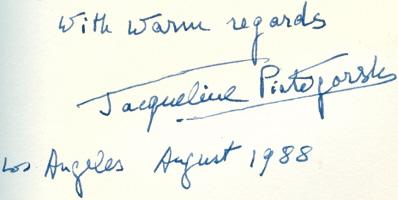 With warm regards
Jacqueline Piatigorsky
Los Angeles August 1988